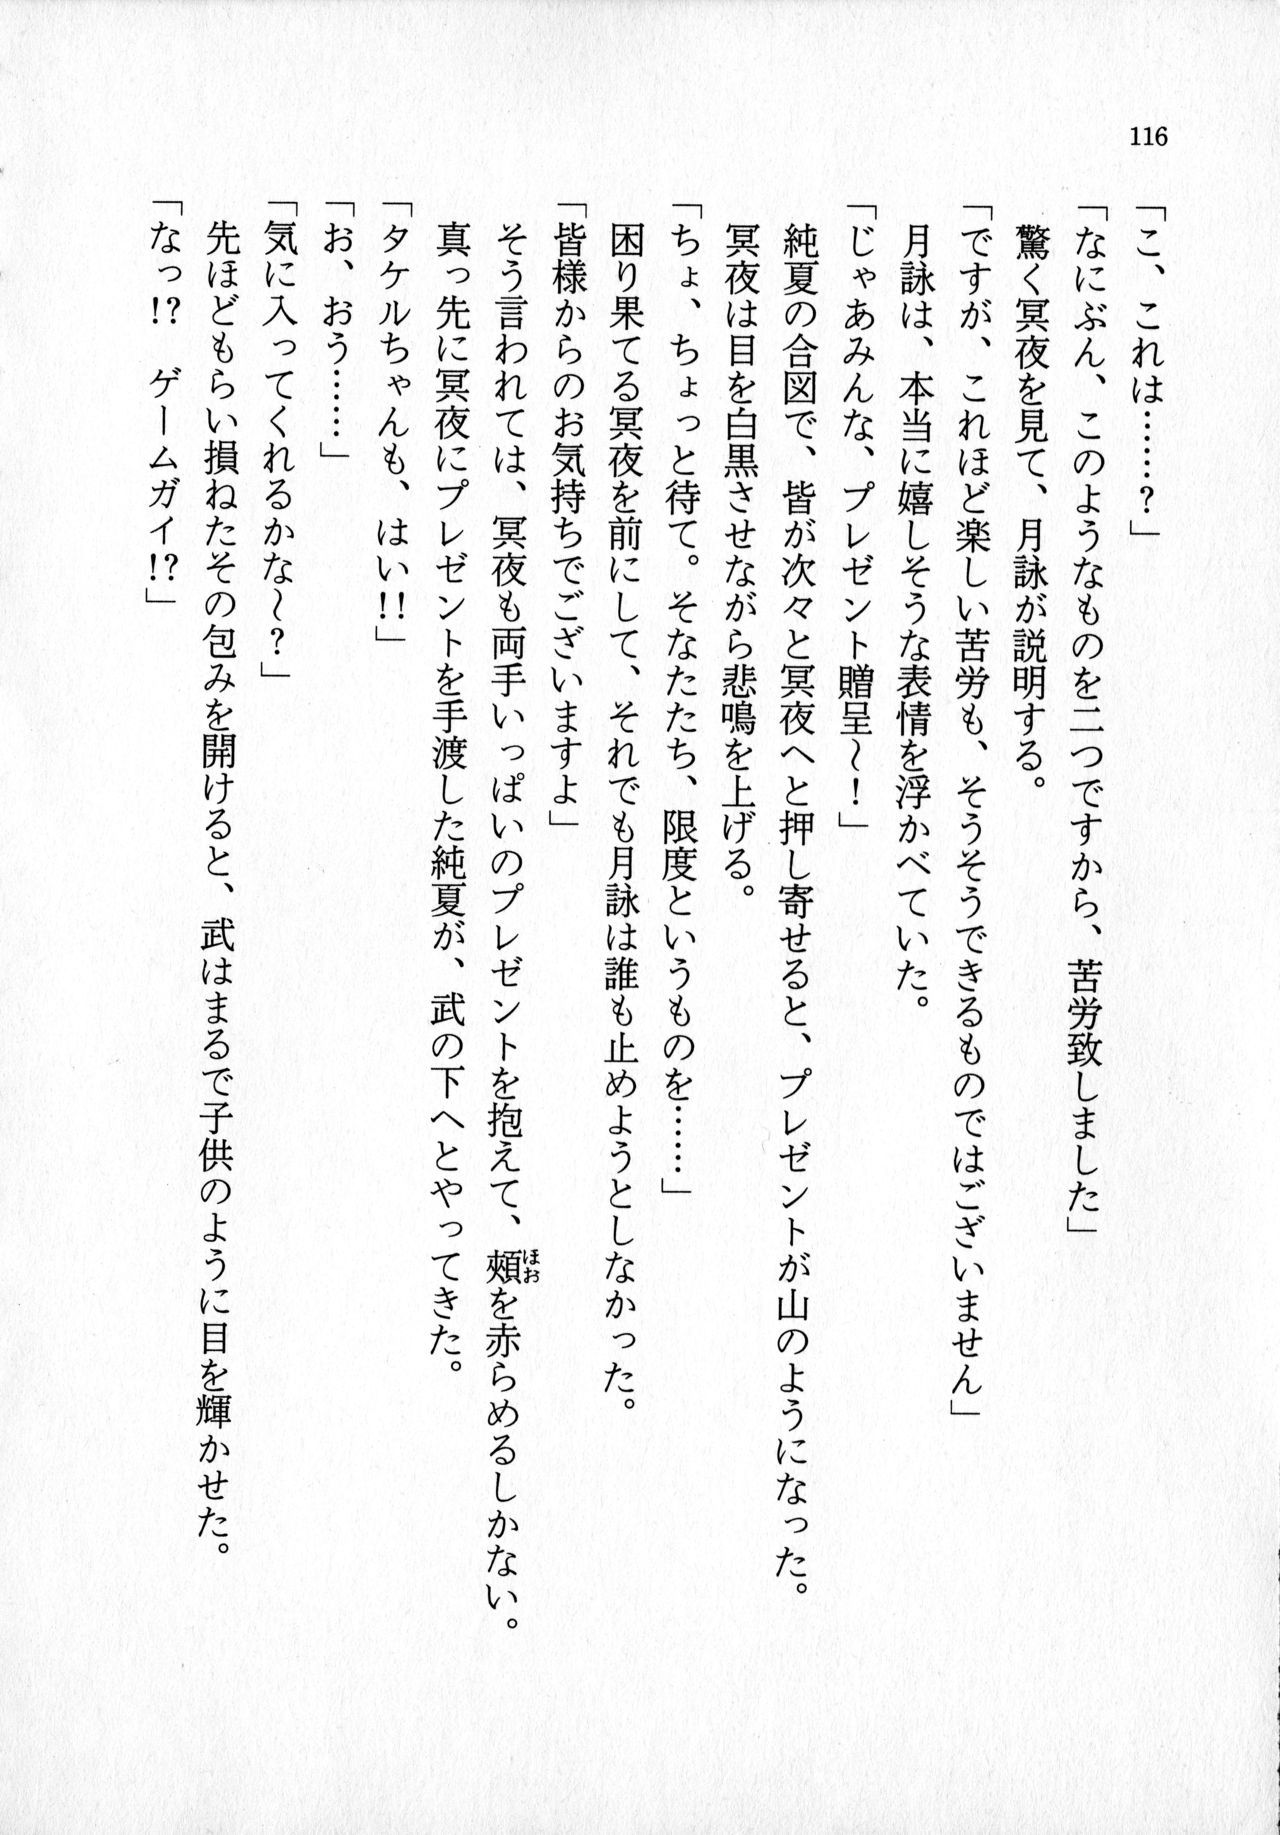 116
「こ、これは……？」
「なにぶん、このようなものを二つですから、苦労致しました」
驚く冥夜を見て、月詠が説明する。
「ですが、これほど楽しい苦労も、そうそうできるものではございません」
月詠は、本当に嬉しそうな表情を浮かべていた。
「じゃあみんな、プレゼント贈呈～！」
純夏の合図で、皆が次々と冥夜へと押し寄せると、プレゼントが山のようになった。
冥夜は目を白黒させながら悲鳴を上げる。
「ちょ、ちょっと待て。そなたたち、限度というものを……」
困り果てる冥夜を前にして、それでも月詠は誰も止めようとしなかった。
「皆様からのお気持ちでございますよ」
そう言われては、冥夜も両手いっぱいのプレゼントを抱えて、頰ほおを赤らめるしかない。
真っ先に冥夜にプレゼントを手渡した純夏が、武の下へとやってきた。
「タケルちゃんも、はい!!」
「お、おう……」
「気に入ってくれるかな～？」
先ほどもらい損ねたその包みを開けると、武はまるで子供のように目を輝かせた。
「なっ!?　ゲームガイ!?」